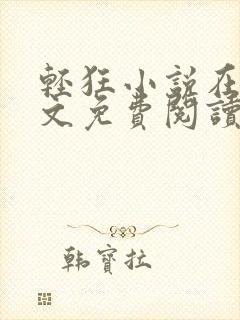 輕狂小說在
文免費閱讀
韩寶拉